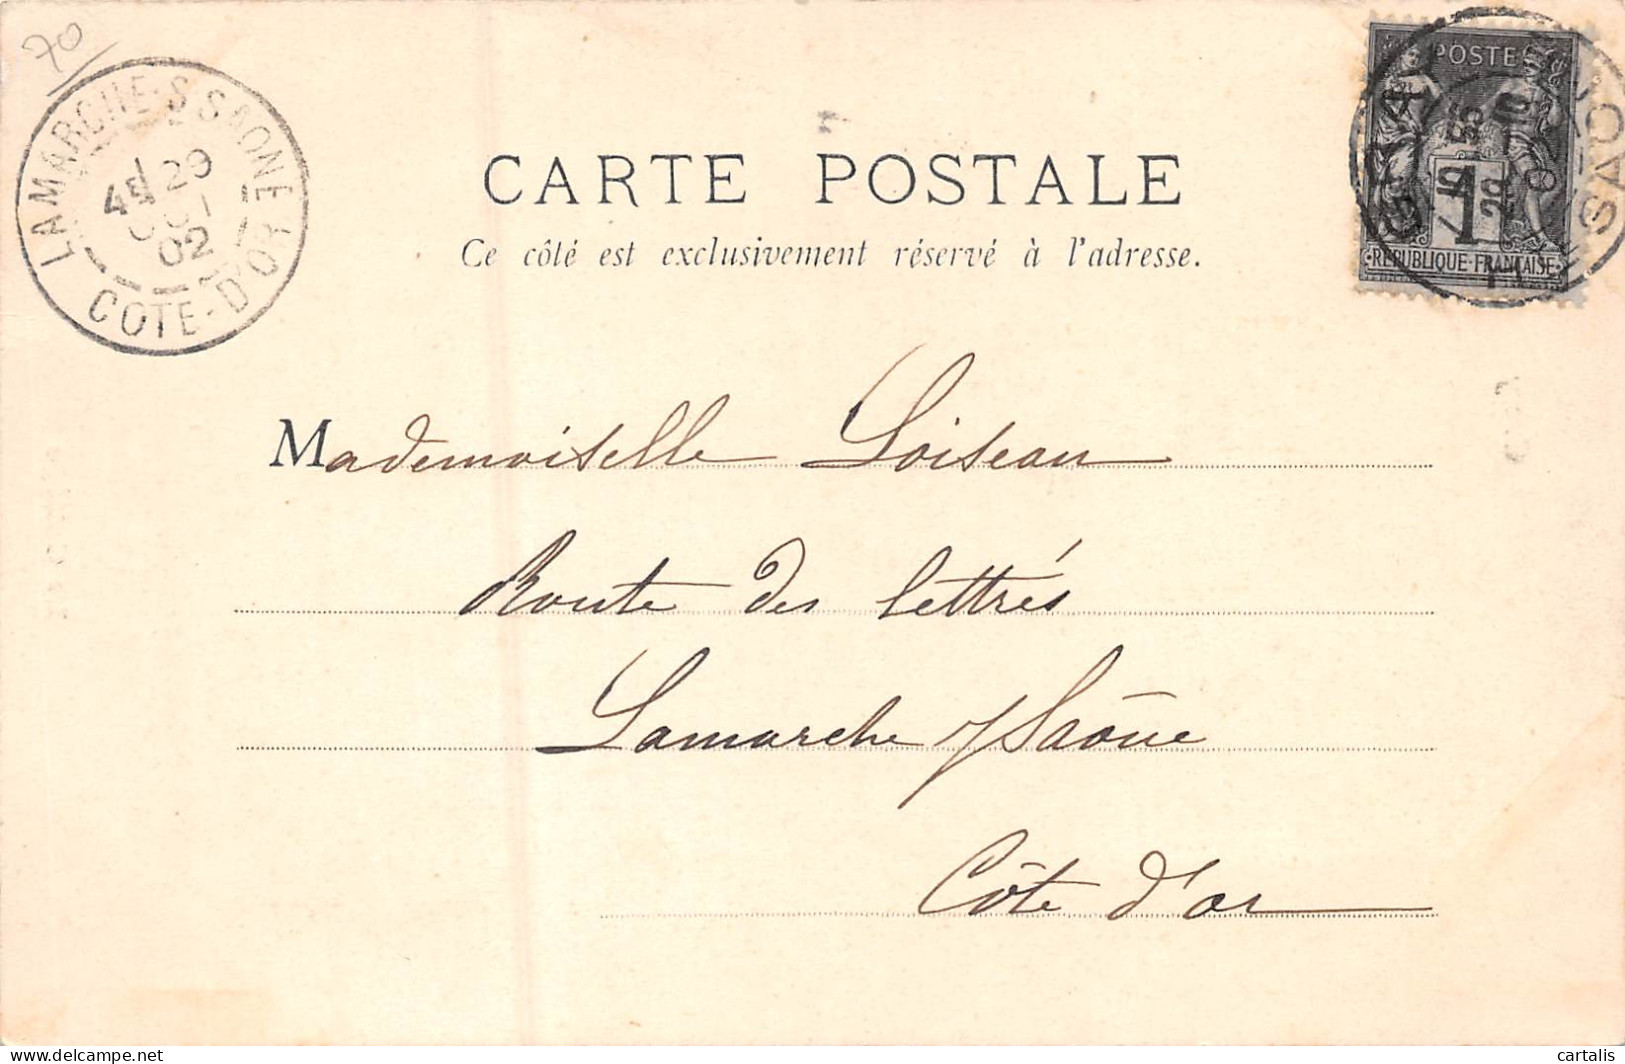 70
LAMARCHE-S-SAONE
29
02
COTE-D'OR
POSTES
1
REPUBLIQUE FRANÇAISE
CARTE POSTALE
Ce côté est exclusivement réservé à l'adresse.
Mademoiselle Loiseau
Route des lettrés
Lamarche s/Saône
Côte d'or
delcampe.net
cartalis